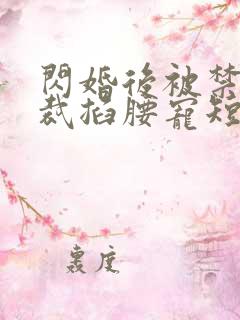 閃婚後被禁
裁掐腰寵短
裏度